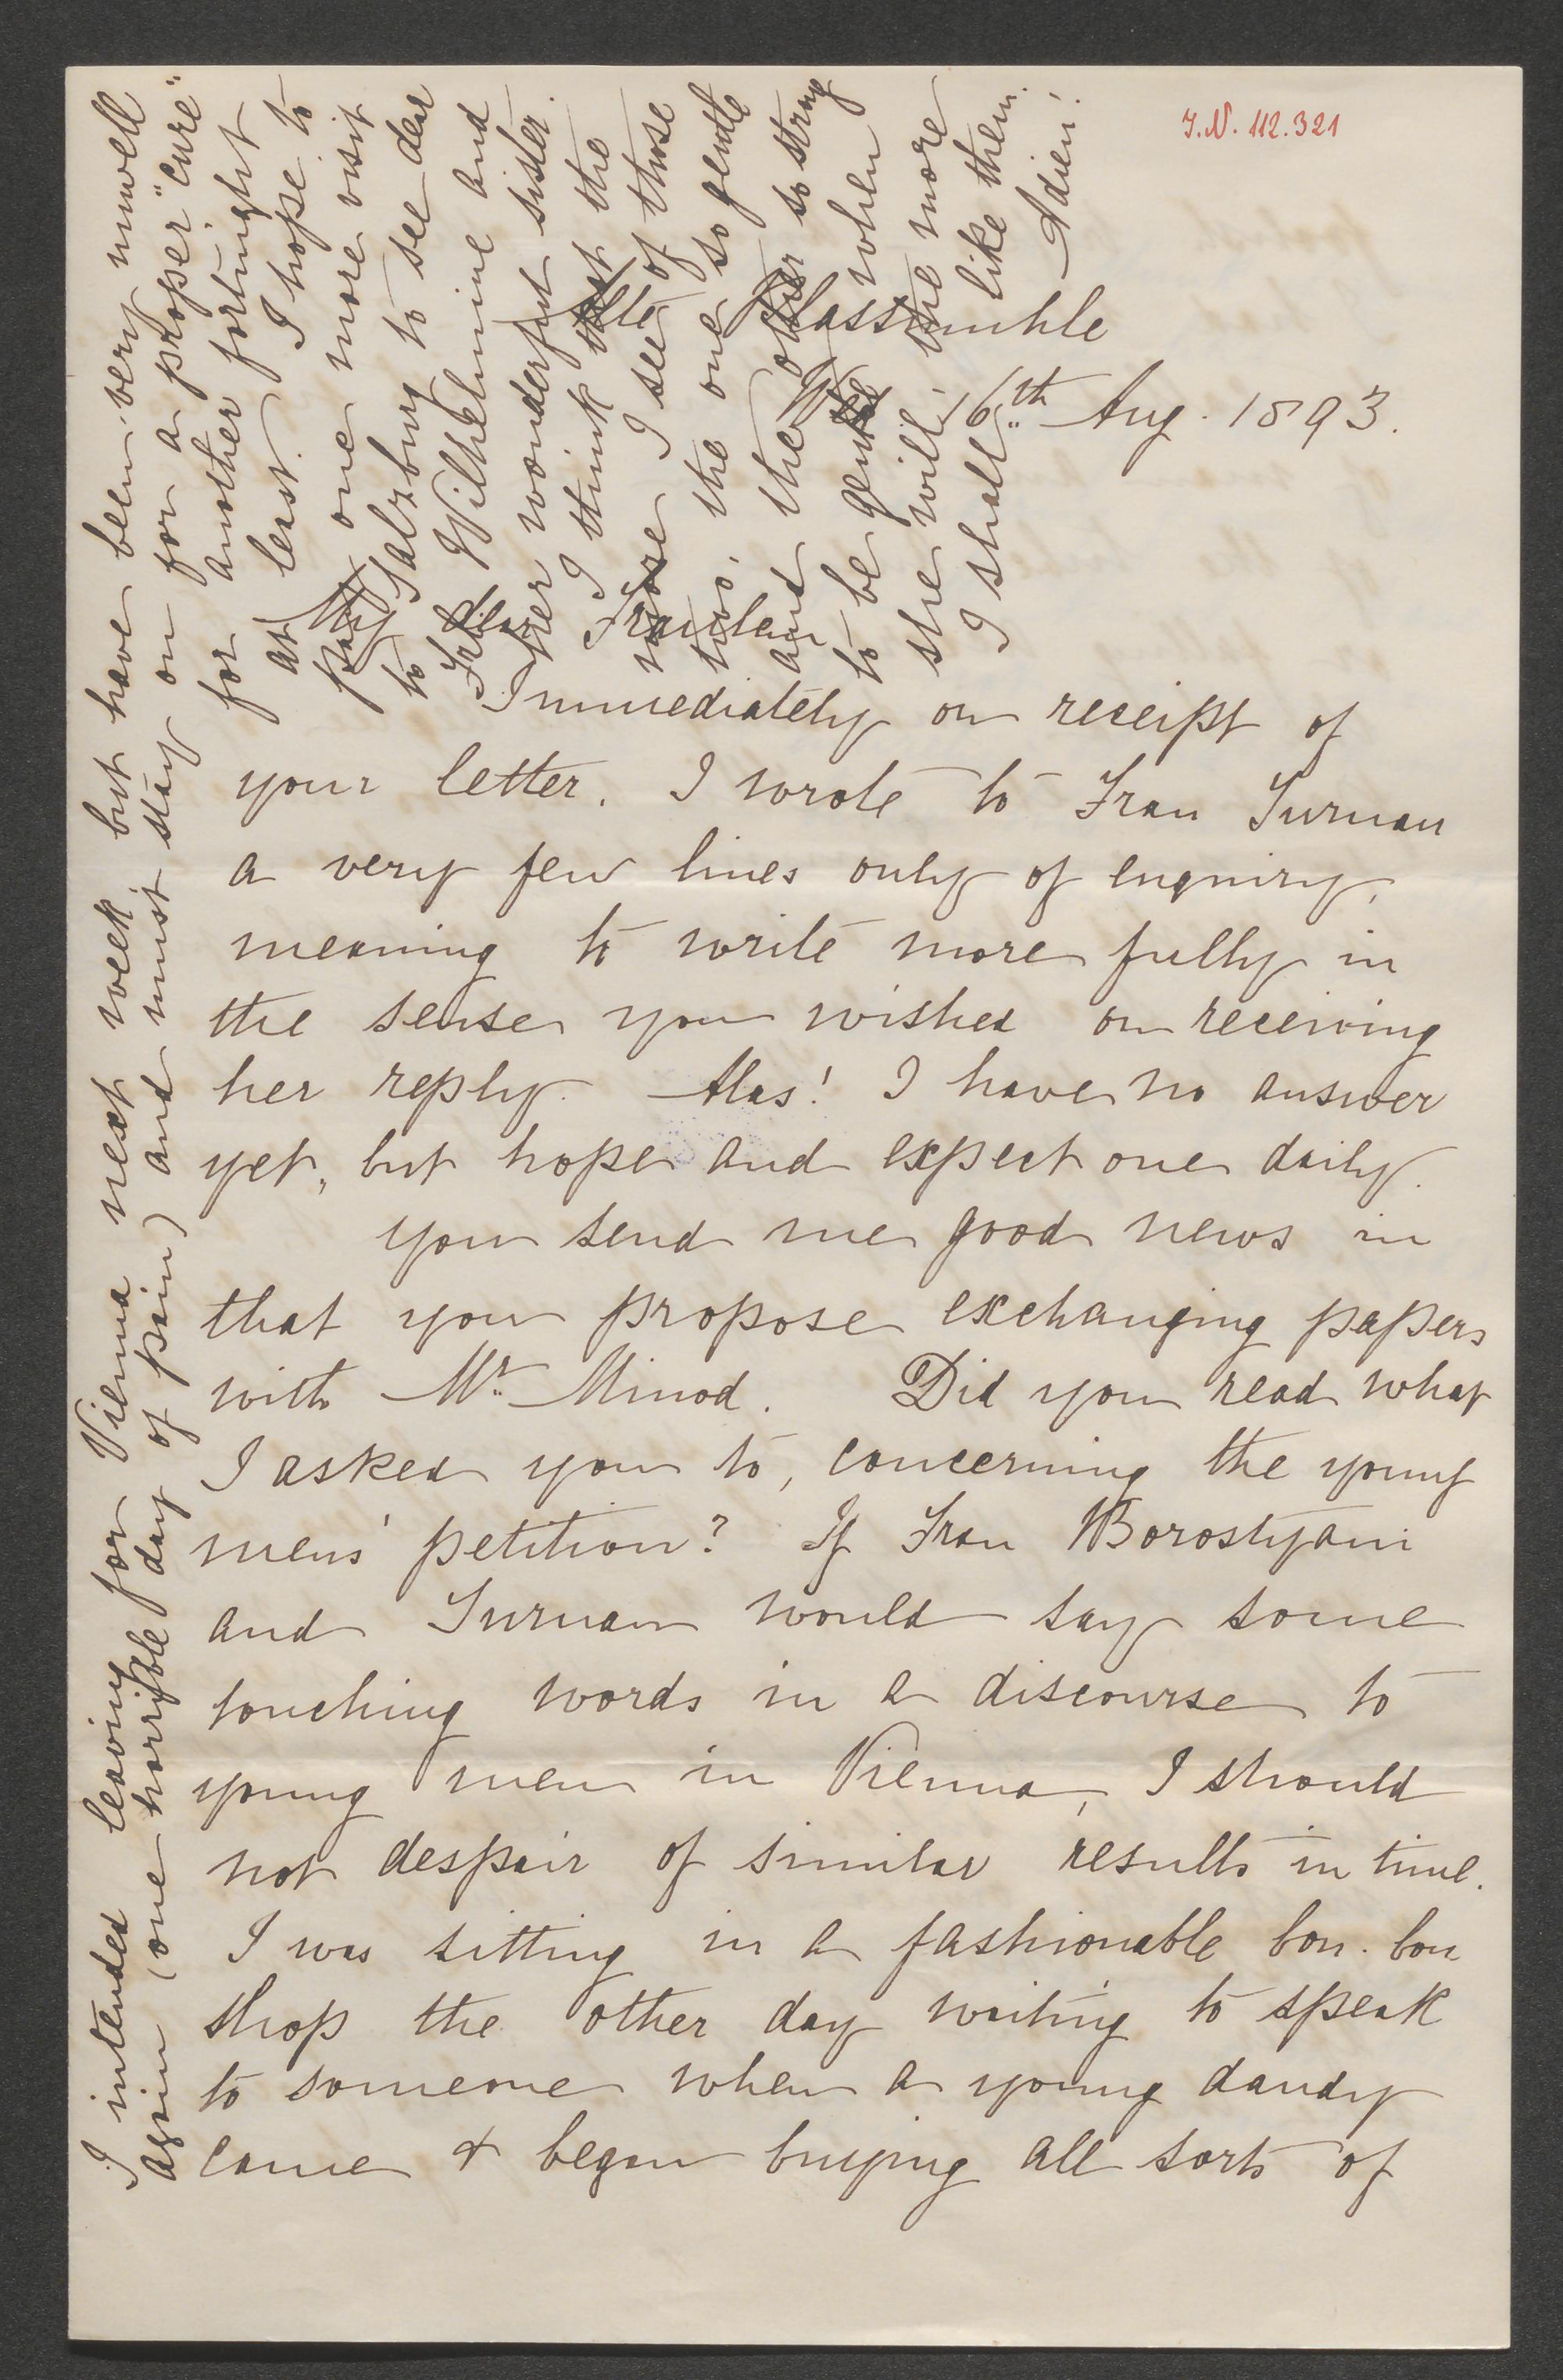 I.N. 112.321
Alte Glassmühle
Wed 16th Aug. 1893.
My dear Fraulein
Immediately on receipt of
your letter. I wrote to Frau Surman
a very few lines only of enquiry,
meaning to write more fully in
the sense you wished on receiving
her reply. Alas! I have no answer
yet, but hope and expect one daily.
You send me good news in
that you propose exchanging papers
with Mr. Minod. Did you read what
I asked you to, concerning the young
mens' petition? If Frau Borostyani
and Surman would say some
touching words in a discourse to
young men in Vienna, I should
not despair of similar results in time.
I was sitting in a fashionable bon-bon
shop the other day waiting to speak
to someone when a young dandy
came & began buying all sorts of
I intended leaving for Vienna next week but have been very unwell
again (one horrible day of pain) and must stay on for a proper "cure"
for another fortnight
at least. I hope to
pay one more visit
to Salzburg to see dear
Frl. Wilhelmine and
her wonderful sister.
I think that the
more I see of those
two, the one so gentle
and the other so strong
to be gentle when
she will, the more
I shall like them.
Adieu!